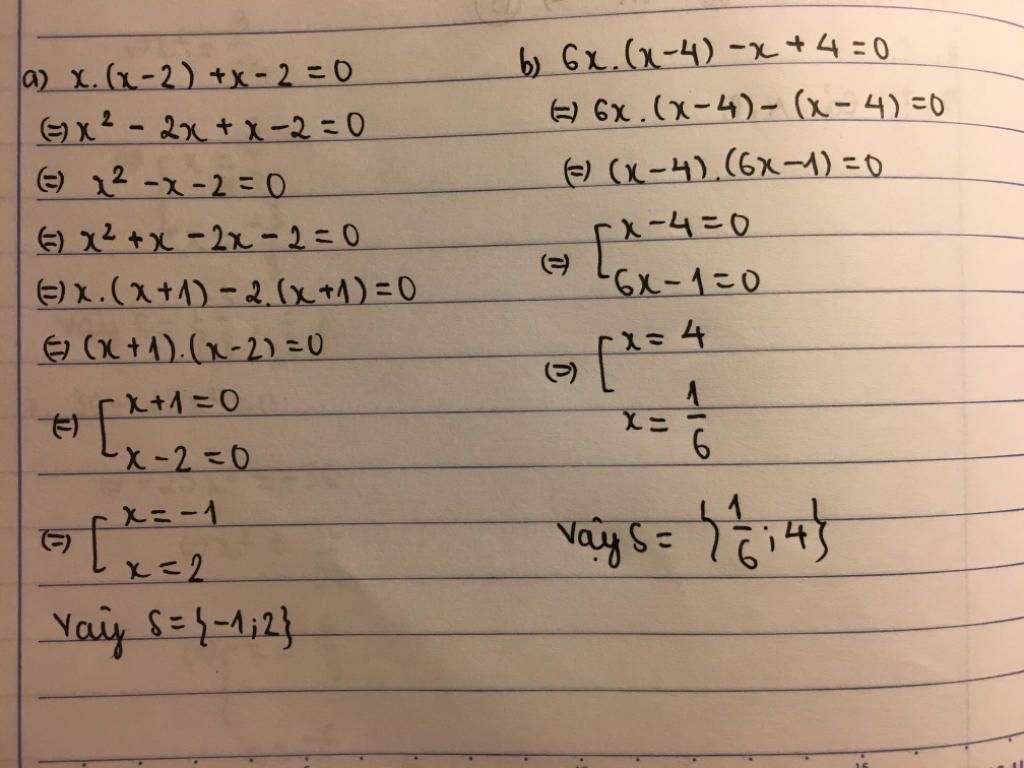 a) x.(x-2) + x - 2 = 0
(=) x² - 2x + x - 2 = 0
(=) x² - x - 2 = 0
(=) x² + x - 2x - 2 = 0
(=) x.(x+1) - 2.(x+1) = 0
(=) (x+1).(x-2) = 0
(=) [ x+1 = 0
x - 2 = 0
(=) [ x = -1
x = 2
Vậy S = {-1;2}
b) 6x.(x-4) - x + 4 = 0
(=) 6x.(x-4) - (x-4) = 0
(=) (x-4).(6x-1) = 0
(=) [ x-4 = 0
6x-1 = 0
(=) [ x = 4
x = 1/6
Vậy S = {1/6; 4}